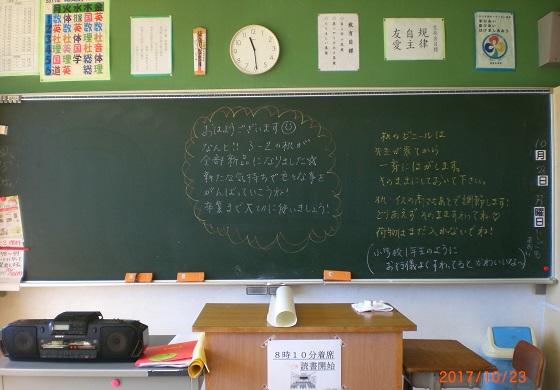 月 火 水 木 金
数 体 水 国 音
英 数 豚 数 体
社 理 体 理 数
理 英 国 総 理
国 道 学 総
教育目標
規律
自主
友愛
おはようございます
なんと!! 3-2の机が
全部新品になりました☆
新たな気持ちで色々な事を
がんばっていこうね!
卒業まで大切に使いましょう!
机のビニールは
先生が来てから
一斉にはがします。
そのままにしておいて下さい。
机・イスの高さもあとで調節します!
とりあえずそのまますわっててね
荷物はまだ入れないでね!
(小学校1年生のように
お行儀よくすわってるとかわいいなぁ)
10月
23日
月曜日
8時10分着席
読書開始
2017/10/23